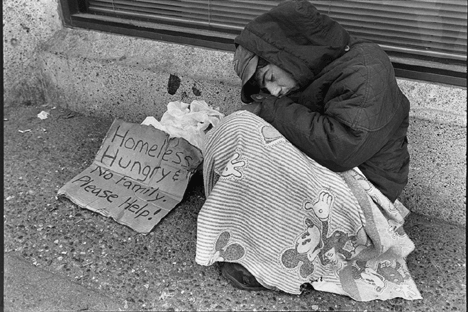 Homeless
Hungry &
No Family.
Please help!